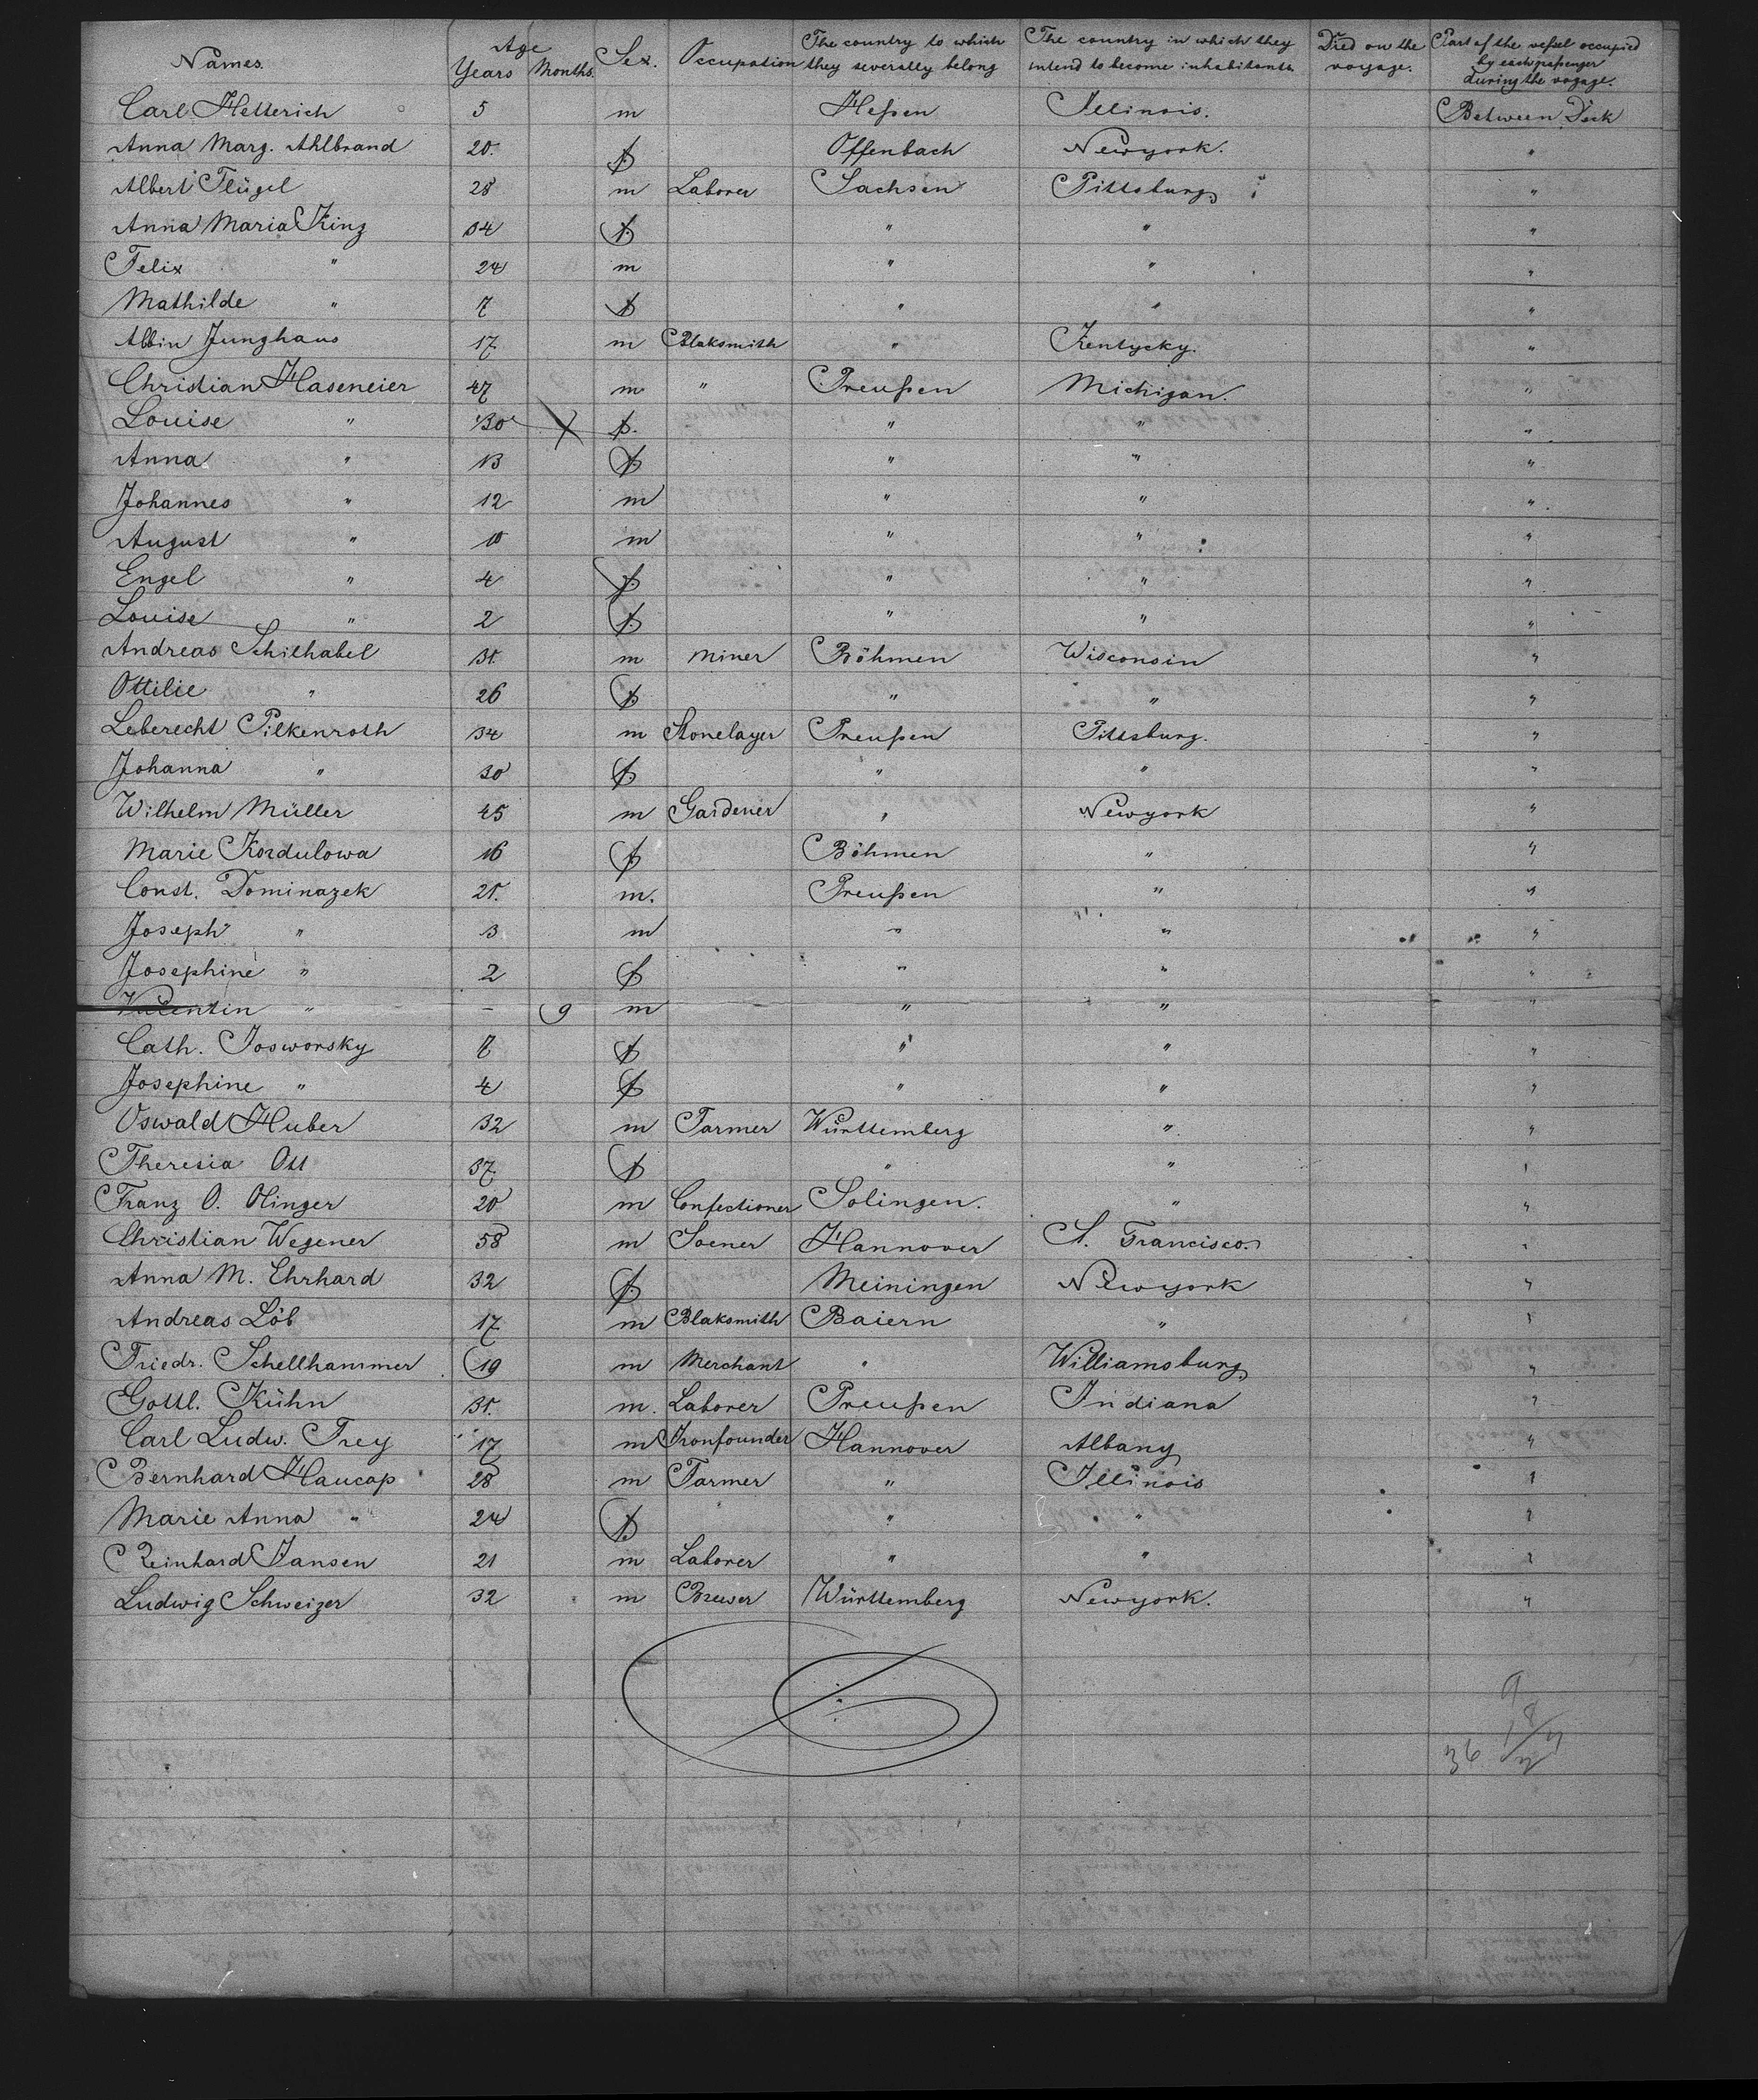 Names. Age Years Months. Sex. Occupation The country to which they severally belong The country in which they intend to become inhabitants Died on the voyage. Part of the veßel occupied by each paßenger during the voyage.
Carl Hetterich 5 m Heßen Illinois. Between Deck
Anna Marg. Ahlbrand 20. f. Offenbach Newyork. "
Albert Flügel 28 m Laborer Sachsen Pittsburg "
Anna Maria King 34 f. " " "
Felix " 24 m " " "
Mathilde " 7 f " " "
Albin Junghans 17 m Blaksmith " Kentycky. "
Christian Haseneier 47 m " Preußen Michigan. "
Louise " 30 f. " " "
Anna " 13 f. " " "
Johannes " 12 m " " "
August " 10 m " " "
Engel " 4 f. " " "
Louise " 2 f. " " "
Andreas Schilhabel 31. m Miner Böhmen Wisconsin "
Ottilie " 26 f. " " "
Leberecht Pilkenroth 34 m Stonelayer Preußen Pittsburg. "
Johanna " 30 f. " " "
Wilhelm Müller 45 m Gardener " Newyork "
Marie Kordulowa 16 f. Böhmen " "
Const. Dominazek 21. m. Preußen " "
Joseph " 3 m " " "
Josephine " 2 f " " "
Valentin " - 9 m " " "
Cath. Josworsky 7 f " " "
Josephine " 4 f " " "
Oswald Huber 32 m Farmer Württemberg " "
Theresia Ott 37. f " " "
Franz O. Olinger 20 m Confectioner Solingen. " "
Christian Wegener 58 m Joener Hannover St. Francisco. "
Anna M. Ehrhard 32 f. Meiningen Newyork "
Andreas Löb 17 m Blaksmith Baiern " "
Friedr. Schellhammer 19 m Merchant " Williamsburg "
Gottl. Kühn 31. m. Laborer Preußen Indiana "
Carl Ludw. Frey 17 m Ironfounder Hannover Albany "
Bernhard Haucap 28 m Farmer " Illinois "
Marie Anna " 24 f. " " "
Reinhard Jansen 21 m Laborer " " "
Ludwig Schweizer 32 m Brewer Württemberg Newyork. "
36